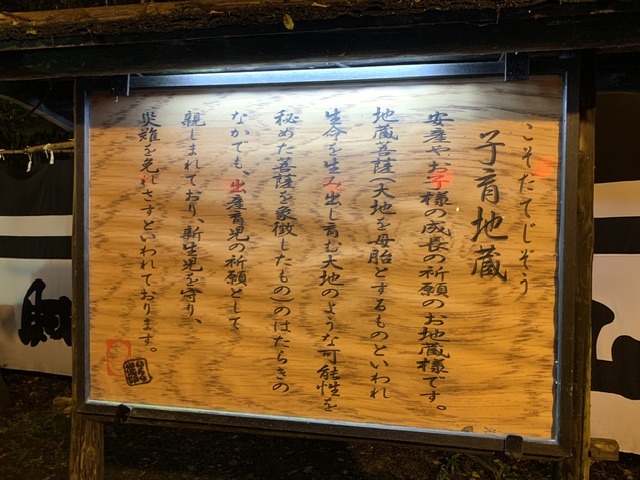 こそだてじぞう
子育地蔵
安産やお子様の成長の祈願のお地蔵様です。
地蔵菩薩(大地を母胎とするものといわれ
生命を生み出し育む大地のような可能性を
秘めた菩薩を象徴したもの)のはたらきの
なかでも、出産育児の祈願として
親しまれており、新生児を守り、
災難を免れさすといわれております。